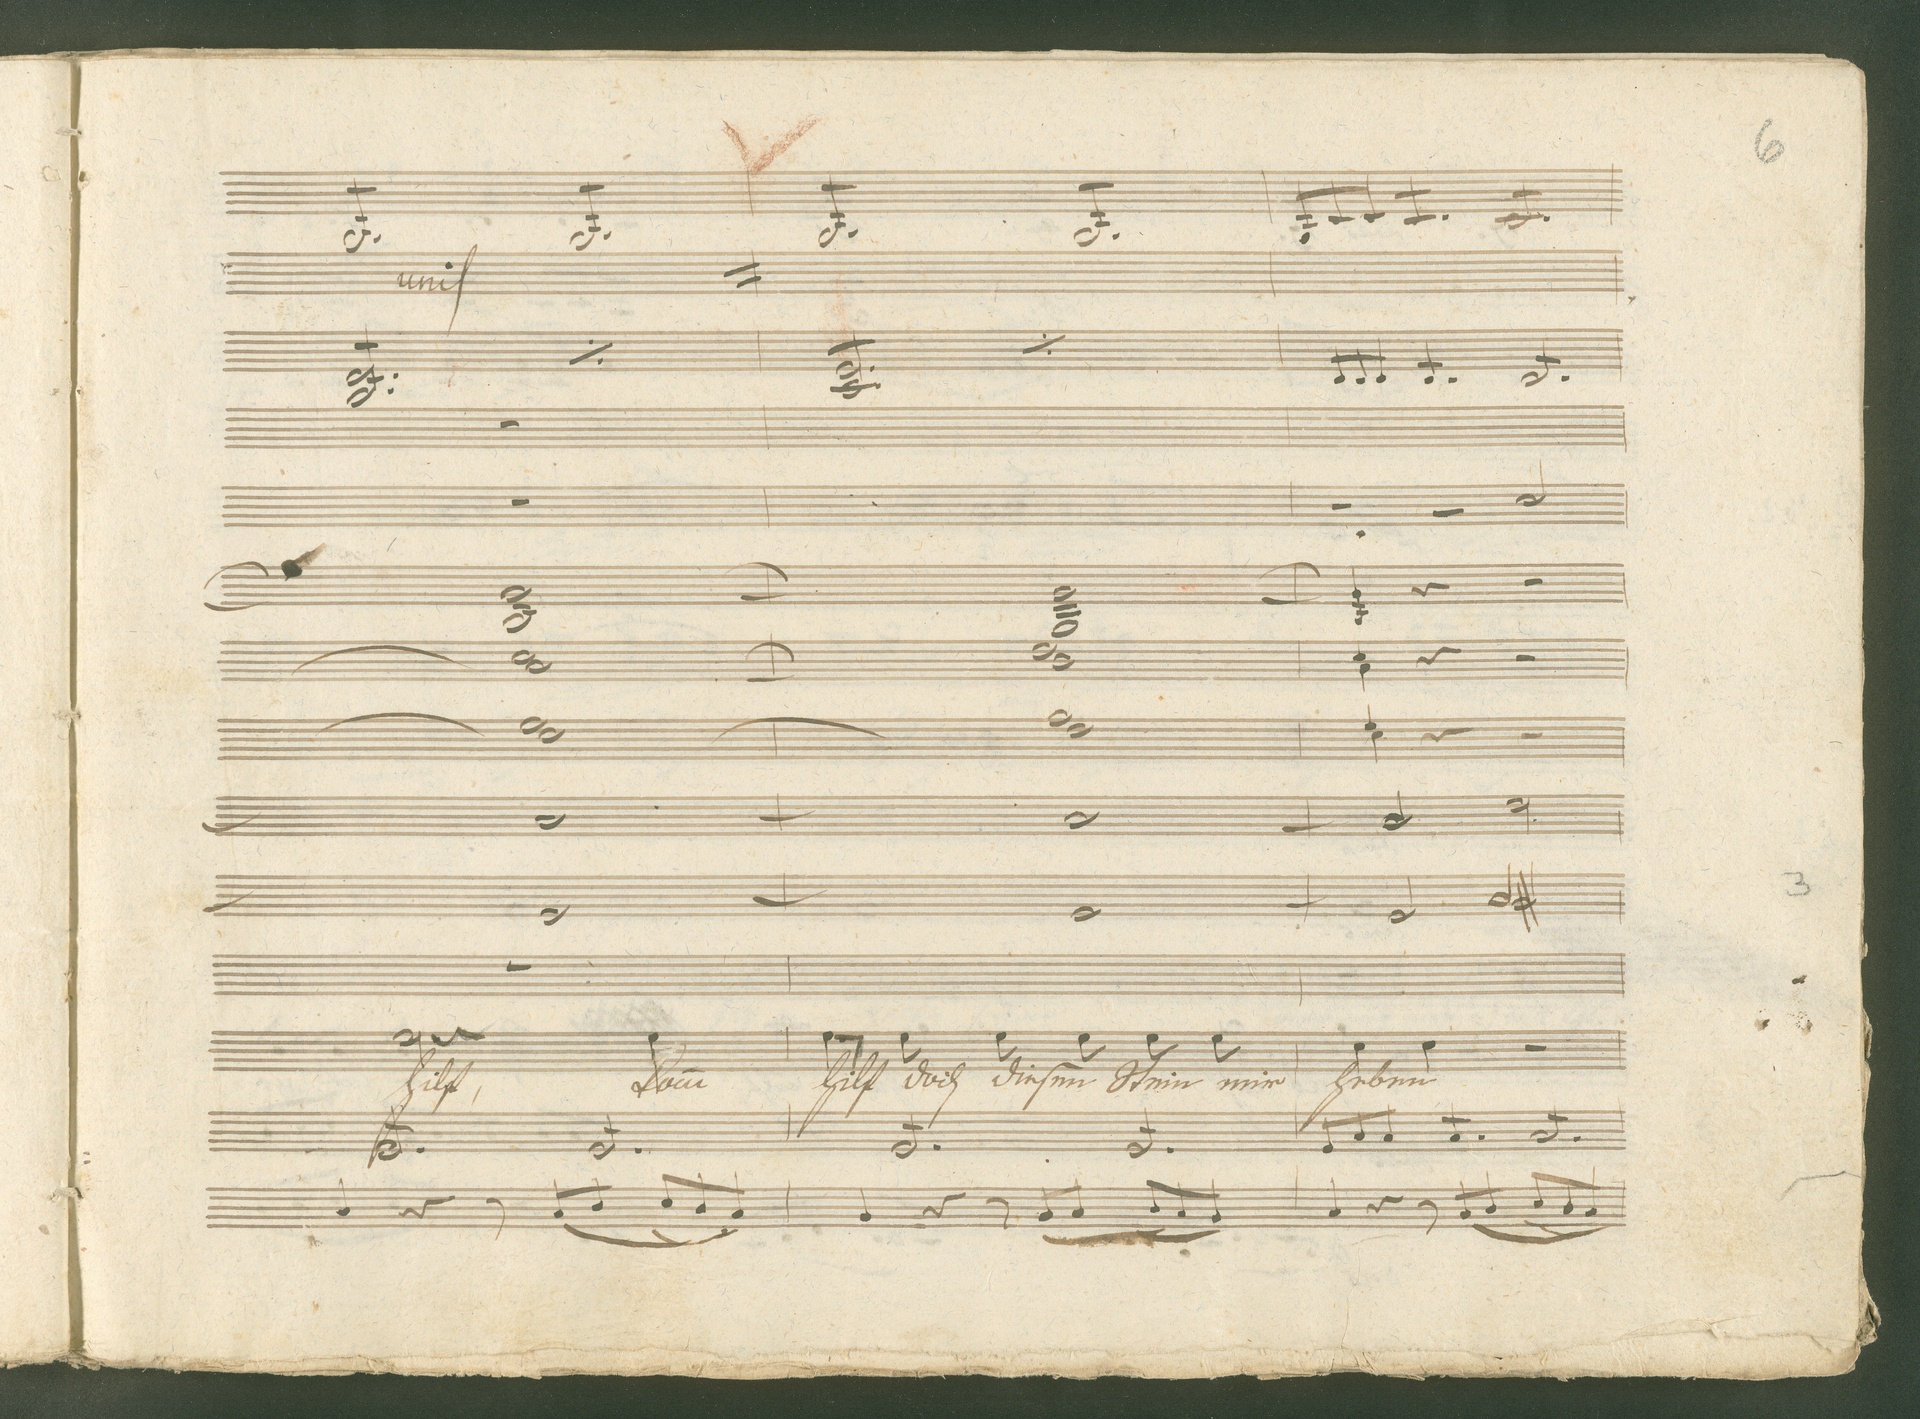 6
unis
3
hilf, Kom̄ hilf doch diesen Stein mir heben